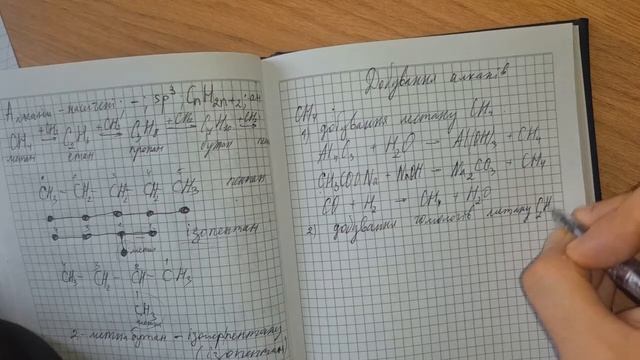 Алкани - насичені : - ; sp³ ; CnH2n+2 ; ан
CH4 +CH2 → C2H6 +CH2 → C3H8 +CH2 → C4H10 +CH2 →
метан етан пропан бутан пен
CH3 - CH2 - CH2 - CH2 - CH3 пентан
ізопентан
метил
CH3 - CH2 - CH - CH3
CH3
метил
2 - метилбутан -
(ізопентан)
Добування алканів
CH4
1) добування метану CH4
Al4C3 + H2O → Al(OH)3 + CH4
CH3COONa + NaOH → Na2CO3 + CH4
CO + H2 → CH4 + H2O
2) добування гомологів метану C2H